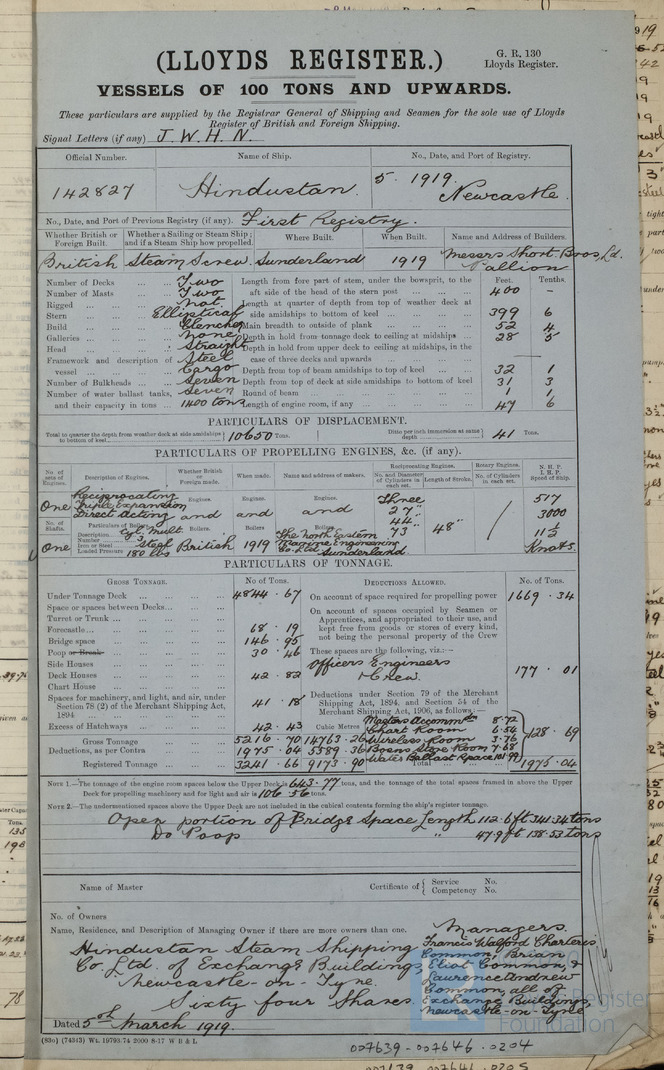 (LLOYDS REGISTER.)
G. R. 130
Lloyds Register.
VESSELS OF 100 TONS AND UPWARDS.
These particulars are supplied by the Registrar General of Shipping and Seamen for the sole use of Lloyds
Register of British and Foreign Shipping.
Signal Letters (if any) J. W. H. N.
Official Number. Name of Ship. No., Date, and Port of Registry.
142827 Hindustan. 5. 1919. Newcastle.
No., Date, and Port of Previous Registry (if any). First Registry.
Whether British or Foreign Built. Whether a Sailing or Steam Ship; and if a Steam Ship how propelled. Where Built. When Built. Name and Address of Builders.
British Steam Screw. Sunderland 1919 Messrs Short Bros, Ld. Pallion
Number of Decks ... ... Two
Number of Masts ... ... Two
Rigged ... ... not.
Stern ... ... Elliptical
Build ... ... Clencher
Galleries ... ... None
Head ... ... Straight
Framework and description of vessel ... ... Steel Cargo
Number of Bulkheads ... ... Seven
Number of water ballast tanks, and their capacity in tons ... Seven 1400 tons
Feet. Tenths.
Length from fore part of stem, under the bowsprit, to the aft side of the head of the stern post ... 400 -
Length at quarter of depth from top of weather deck at side amidships to bottom of keel ... 399 6
Main breadth to outside of plank ... 52 4
Depth in hold from tonnage deck to ceiling at midships ... 28 5
Depth in hold from upper deck to ceiling at midships, in the case of three decks and upwards
Depth from top of beam amidships to top of keel ... 32 1
Depth from top of deck at side amidships to bottom of keel 31 3
Round of beam ... 1 1
Length of engine room, if any ... 47 6
PARTICULARS OF DISPLACEMENT.
Total to quarter the depth from weather deck at side amidships to bottom of keel 10650 Tons. Ditto per inch immersion at same depth 41 Tons.
PARTICULARS OF PROPELLING ENGINES, &c. (if any).
No. of sets of Engines. Description of Engines. Whether British or Foreign made. When made. Name and address of makers. Reciprocating Engines. No. and Diameter of Cylinders in each set. Length of Stroke. Rotary Engines. No. of Cylinders in each set. N. H. P. I. H. P. Speed of Ship.
One Reciprocating Triple Expansion Direct Acting
Engines. Engines. Engines.
and and and
Three 27" 44" 73" 48"
517
3000
11 1/2 Knots.
No. of Shafts. Particulars of Boilers. Boilers Boilers Boilers
Description Cyl. Mult
Number 3
Iron or Steel Steel
Loaded Pressure 180 lbs
One British 1919 The North Eastern Marine Engineering Co. Ltd Sunderland
PARTICULARS OF TONNAGE.
GROSS TONNAGE. No. of Tons.
Under Tonnage Deck ... 4844.67
Space or spaces between Decks...
Turret or Trunk ...
Forecastle... 68.19
Bridge space 146.95
Poop or Break 30.46
Side Houses
Deck Houses 42.82
Chart House
Spaces for machinery, and light, and air, under Section 78 (2) of the Merchant Shipping Act, 1894 ... 41.18
Excess of Hatchways ... 42.43
Cubic Metres
Gross Tonnage 5216.70 14763.26
Deductions, as per Contra 1975.04 5589.36
Registered Tonnage 3241.66 9173.90
DEDUCTIONS ALLOWED. No. of Tons.
On account of space required for propelling power 1669.34
On account of spaces occupied by Seamen or Apprentices, and appropriated to their use, and kept free from goods or stores of every kind, not being the personal property of the Crew
These spaces are the following, viz.:-
Officers Engineers & Crew. 177.01
Deductions under Section 79 of the Merchant Shipping Act, 1894, and Section 54 of the Merchant Shipping Act, 1906, as follows:-
Masters Accommtn 8.72
Chart Room 6.54
Wireless Room 3.76
Bosns Store Room 7.68
Water Ballast Space 101.99
128.69
Total 1975.04
NOTE 1.-The tonnage of the engine room spaces below the Upper Deck is 643.77 tons, and the tonnage of the total spaces framed in above the Upper
Deck for propelling machinery and for light and air is 106.56 tons.
NOTE 2.-The undermentioned spaces above the Upper Deck are not included in the cubical contents forming the ship's register tonnage.
Open portion of Bridge Space Length 112.6 ft 341.34 tons
Do Poop " 47.9 ft 138.53 tons
Name of Master Certificate of { Service No. Competency No.
No. of Owners
Name, Residence, and Description of Managing Owner if there are more owners than one.
Hindustan Steam Shipping
Co Ltd. of Exchange Buildings
Newcastle-on-Tyne.
Sixty four Shares
Managers.
Francis Walford Charteris
Common, Brian
Eliot Common, &
Laurence Andrew
Common, all of
Exchange Buildings
Newcastle-on-Tyne
Dated 5th March 1919.
(83o) (74343) Wt. 19793/74 2000 8-17 W B & L
Register
Foundation
007639-007646-0204